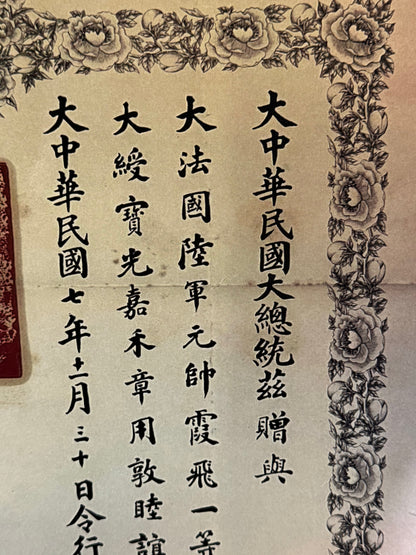 大中華民國大總統茲贈與
大法國陸軍元帥霞飛一等
大綬寶光嘉禾章用敦睦誼
大中華民國七年十二月三十日令行